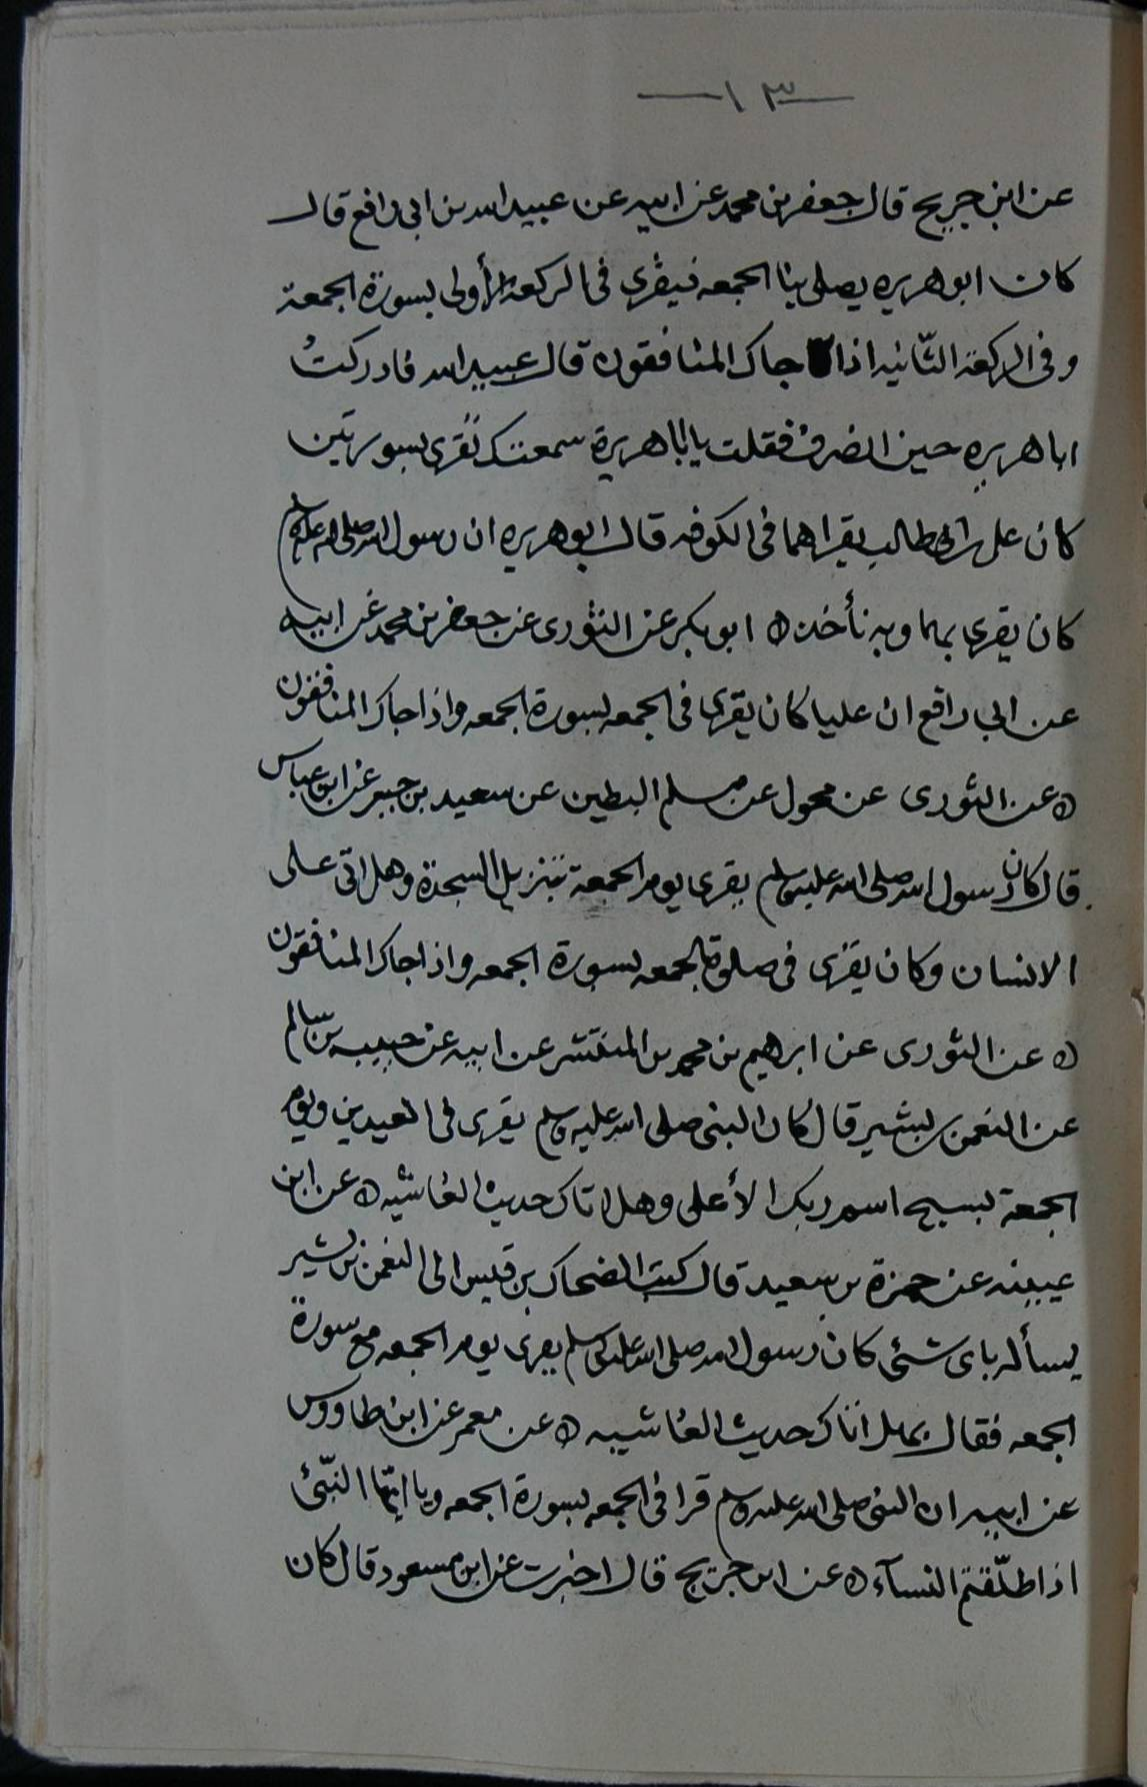 ١٣
عن ابن جريج قال جعفر بن محمد عن ابيه عن عبيد الله بن ابى رافع قال
كان ابو هريره يصلى بنا الجمعه فيقرى فى الركعة الأولى بسورة الجمعة
وفى الركعة الثّانيه اذا جاك المنافقون قال عبيد الله فادركتُ
ابا هريره حين انصرف فقلت يا ابا هريرة سمعتك تقرى بسورتين
كان على بن ابى طالب يقراهما فى الكوفه قال ابو هريره ان رسول الله صلى الله عليه وسلم
كان يقرى بهما وبه نأخذ ه ابو بكر عن الثورى عن جعفر بن محمد عن ابيه
عن ابى رافع ان عليا كان يقرى فى الجمعه بسورة الجمعه واذا جاك المنافقون
ه عن الثورى عن محول عن مسلم البطين عن سعيد بن جبير عن ابن عباس
قال كان رسول الله صلى الله عليه وسلم يقرى يوم الجمعة بتنزيل السجدة وهل اتى على
الانسان وكان يقرى فى صلوة الجمعه بسورة الجمعه واذا جاك المنافقون
ه عن الثورى عن ابرهيم بن محمد بن المنتشر عن ابيه عن حبيب بن سالم
عن النعمن بن بشير قال كان النبى صلى الله عليه وسلم يقرى فى العيدين ويوم
الجمعة بسبح اسم ربك الأعلى وهل اتاك حديث الغاشيه ه عن ابن
عيينه عن حمزة بن سعيد قال كتب الضحاك بن قيس الى النعمن بن بشير
يسأله باى شئى كان رسول الله صلى الله عليه وسلم يقرى يوم الجمعه مع سورة
الجمعه فقال بهل اتاك حديث الغاشيه ه عن معمر عن ابن طاووس
عن ابيه ان النبى صلى الله عليه وسلم قرا فى الجمعه بسورة الجمعه ويا ايّها النبّئ
اذا طلّقتم النسآء ه عن ابن جريج قال اخبرت عن ابن مسعود قال كان